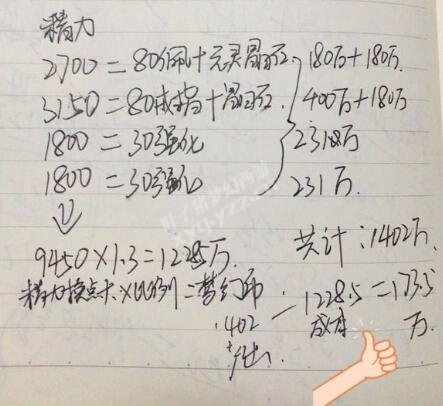 精力
2700 = 80佩+元灵晶石 180万+180万
3150 = 80戒指+晶石 400万+180万
1800 = 30强化 231万
1800 = 30强化 231万
9450×1.3=1228.5万 共计:1402万
精力换点卡×比例=梦幻币
1402 - 1228.5 = 173.5万
产出 成本
叶子猪梦幻西游
xyq.yzz.cn